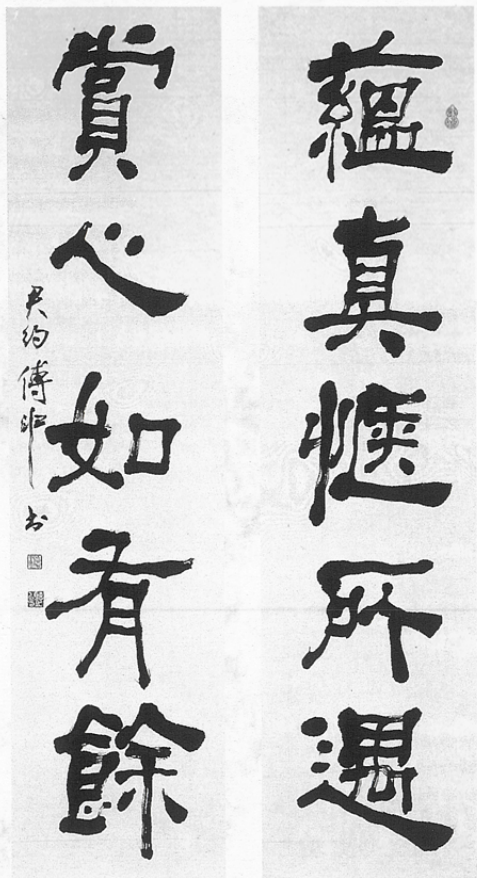 蘊真愜所遇
賞心如有餘
君約傅申書